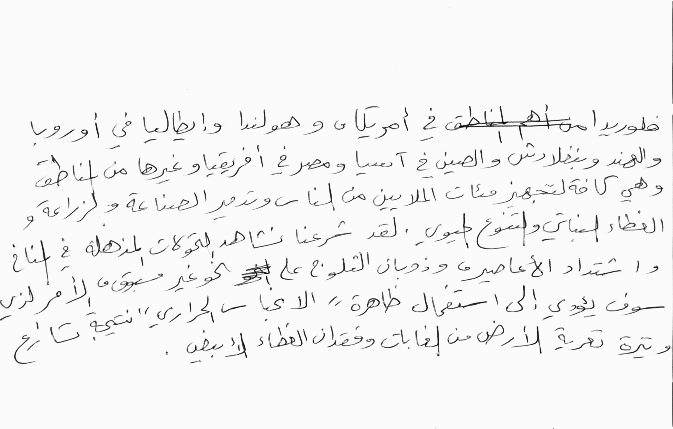 فلوريدا من أهم المناطق في أمريكا، وهولندا وإيطاليا في أوروبا
والهند وبنغلادش والصين في آسيا ومصر في أفريقيا وغيرها من المناطق
وهي كافة لتجهيز مئات الملايين من الناس وتدمير الصناعة والزراعة و
الغطاء النباتي والتنوع الحيوي. لقد شرعنا نشاهد التحولات المذهلة في المناخ
واشتداد الأعاصير، وذوبان الثلوج على نحو غير مسبوق، الأمر الذي
سوف يؤدي إلى استفحال ظاهرة "الانحباس الحراري" نتيجة تسارع
وتيرة تعرية الأرض من الغابات وفقدان الغطاء الأبيض.